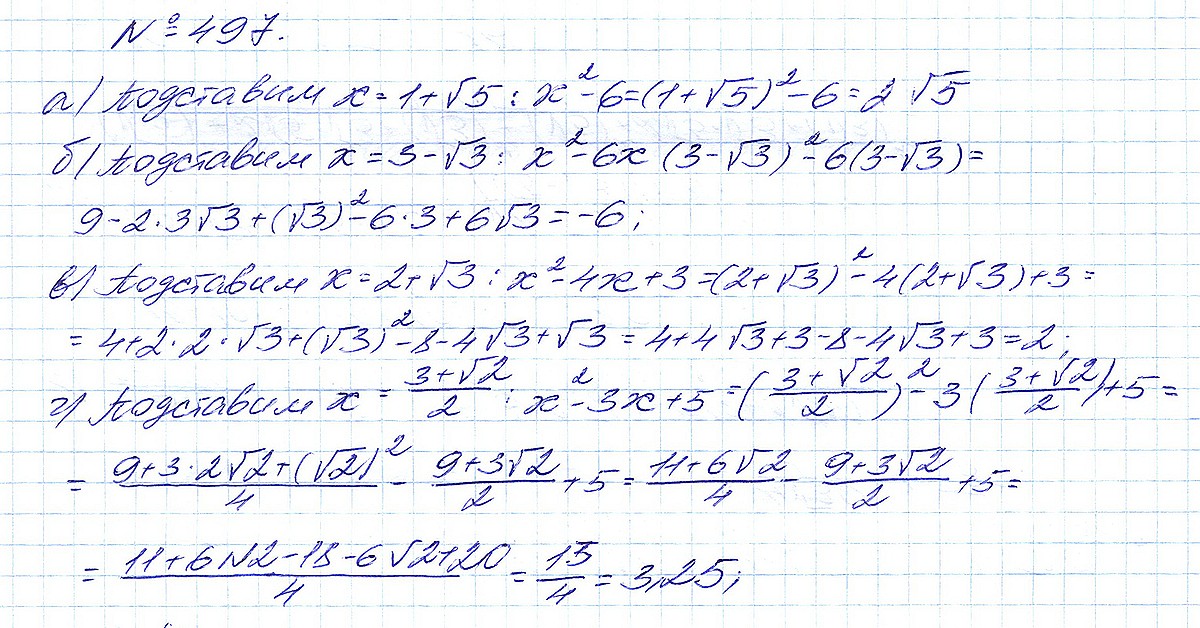 № 497.
а) Подставим x = 1+√5 : x² - 6 = (1+√5)² - 6 = 2√5
б) Подставим x = 3-√3 : x² - 6x (3-√3)² - 6(3-√3) =
9 - 2·3√3 + (√3)² - 6·3 + 6√3 = -6;
в) Подставим x = 2+√3 : x² - 4x + 3 = (2+√3)² - 4(2+√3) + 3 =
= 4+2·2·√3+(√3)² - 8 - 4√3 + √3 = 4+4√3+3-8-4√3+3 = 2;
г) Подставим x = (3+√2)/2 : x² - 3x + 5 = ((3+√2)/2)² - 3((3+√2)/2) + 5 =
= (9+3·2√2+(√2)²)/4 - (9+3√2)/2 + 5 = (11+6√2)/4 - (9+3√2)/2 + 5 =
= (11+6√2-18-6√2+20)/4 = 13/4 = 3,25;